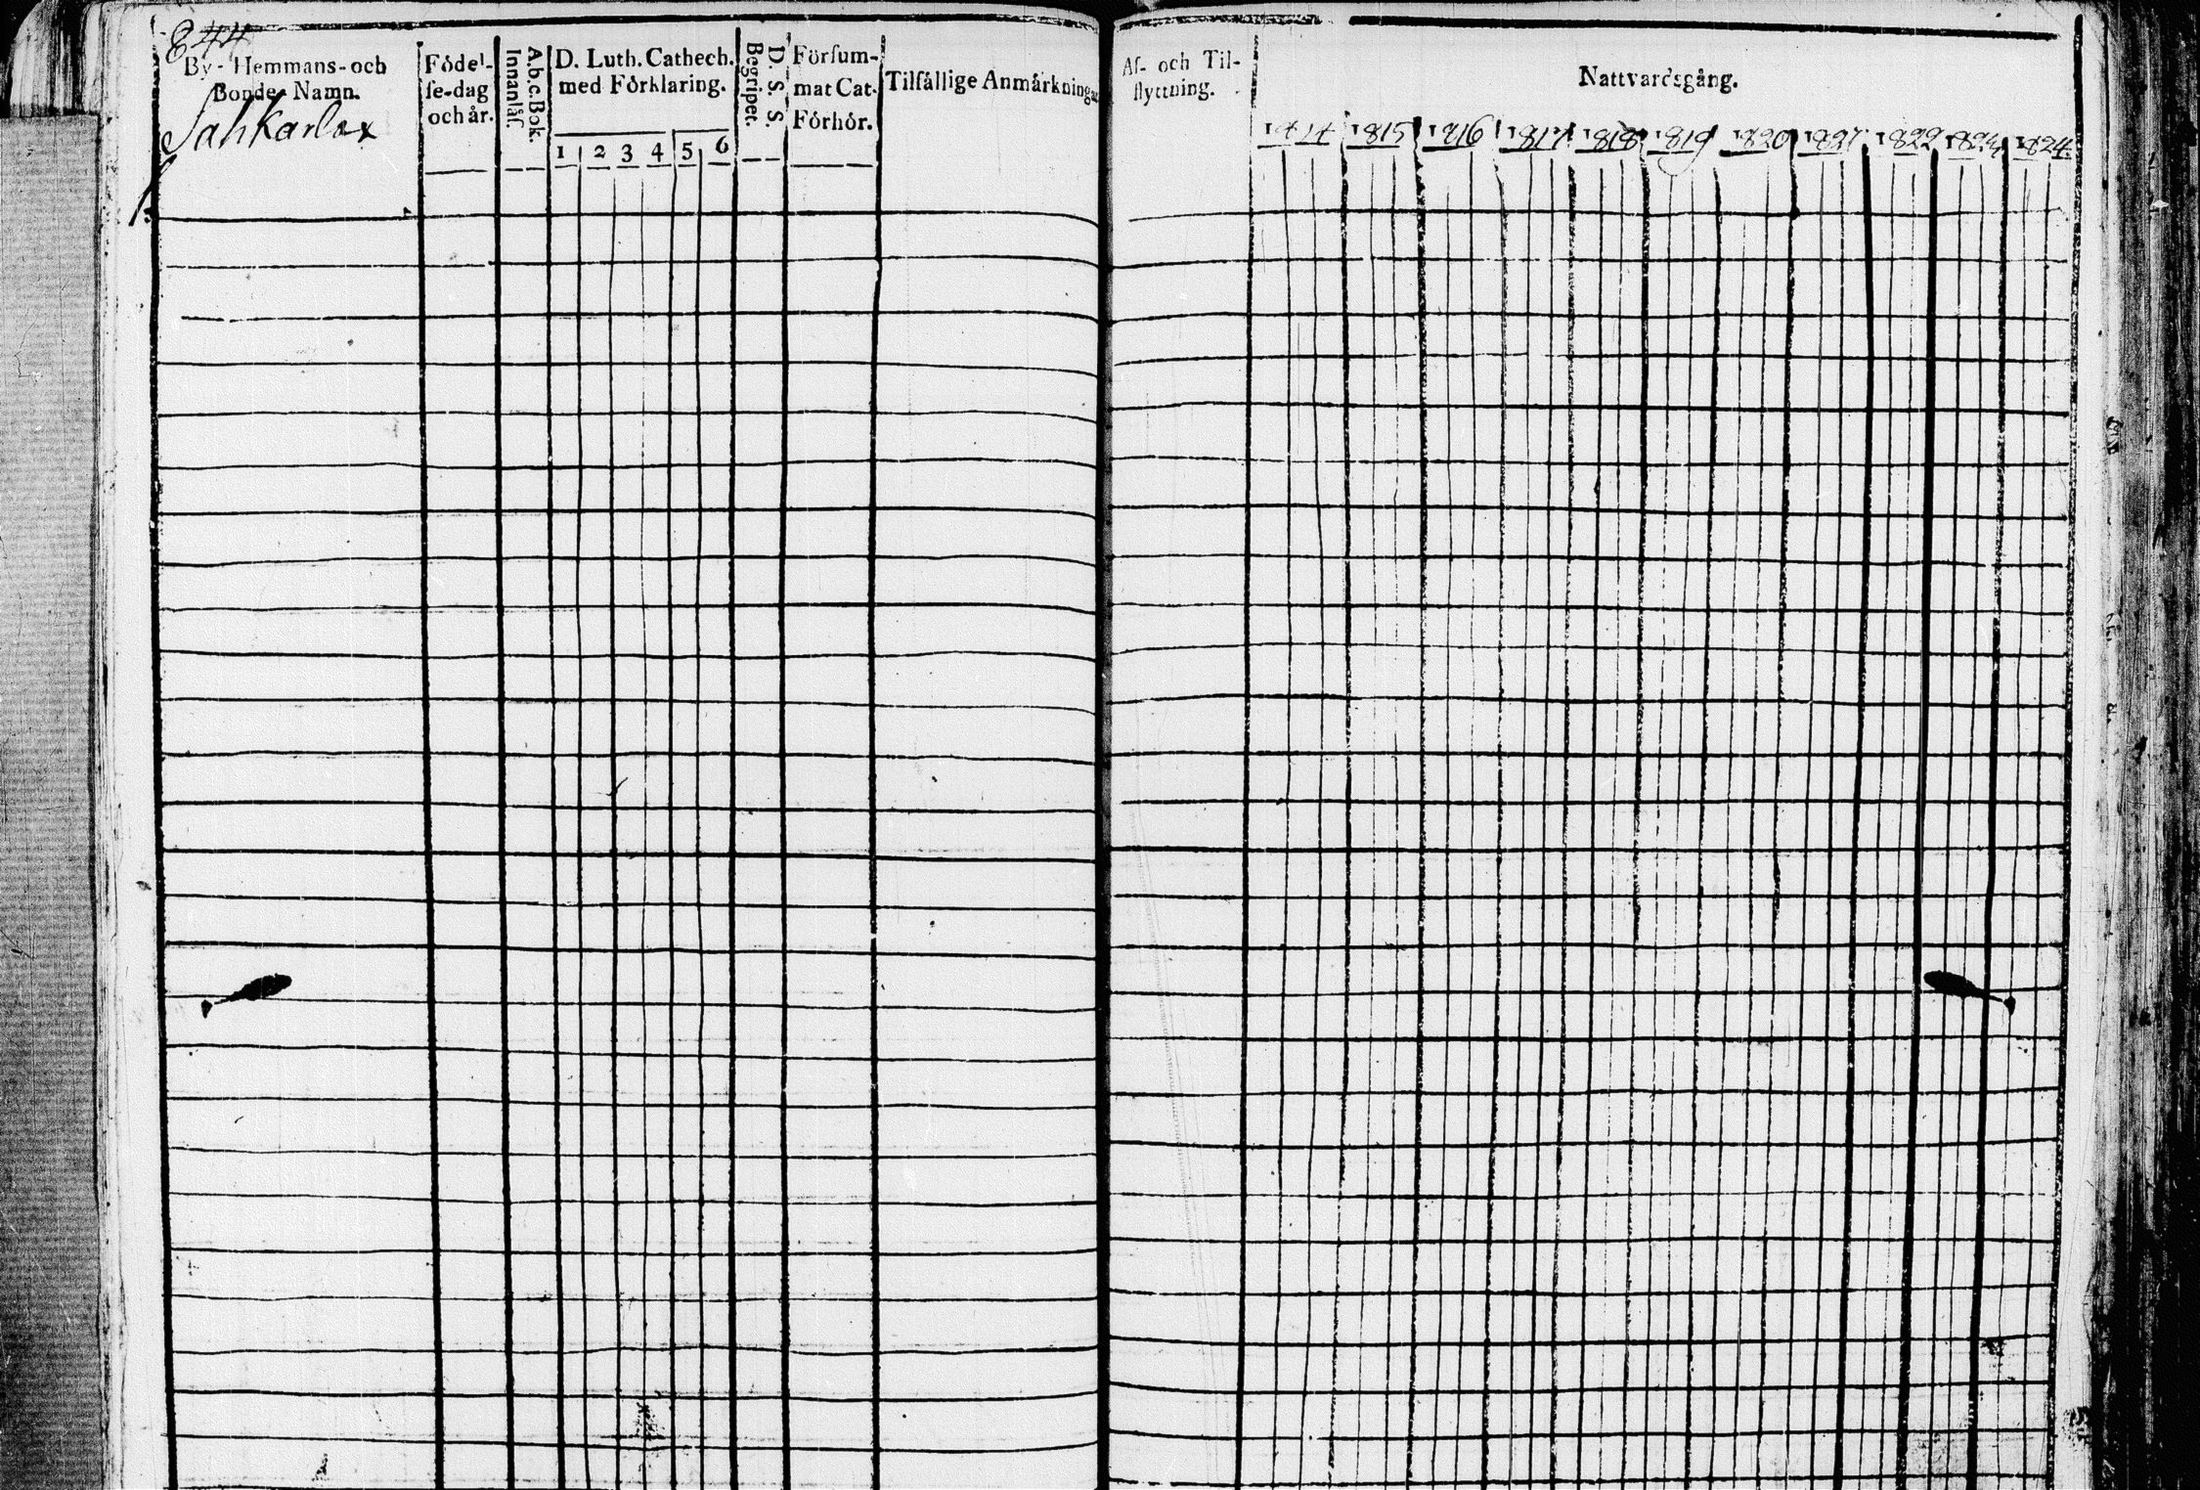 844
By- Hemmans- och
Bonde Namn.
Födel-
se-dag
och år.
A.b.c.Bok.
Innanläs.
D. Luth. Cathech.
med Förklaring.
1 2 3 4 5 6
D. S. S.
Begripet.
Försum-
mat Cat.
Förhör.
Tilfällige Anmärkningar
Jahkarlax
Af- och Til-
flyttning.
Nattvardsgång.
1814 1815 1816 1817 1818 1819 1820 1821 1822 1823 1824